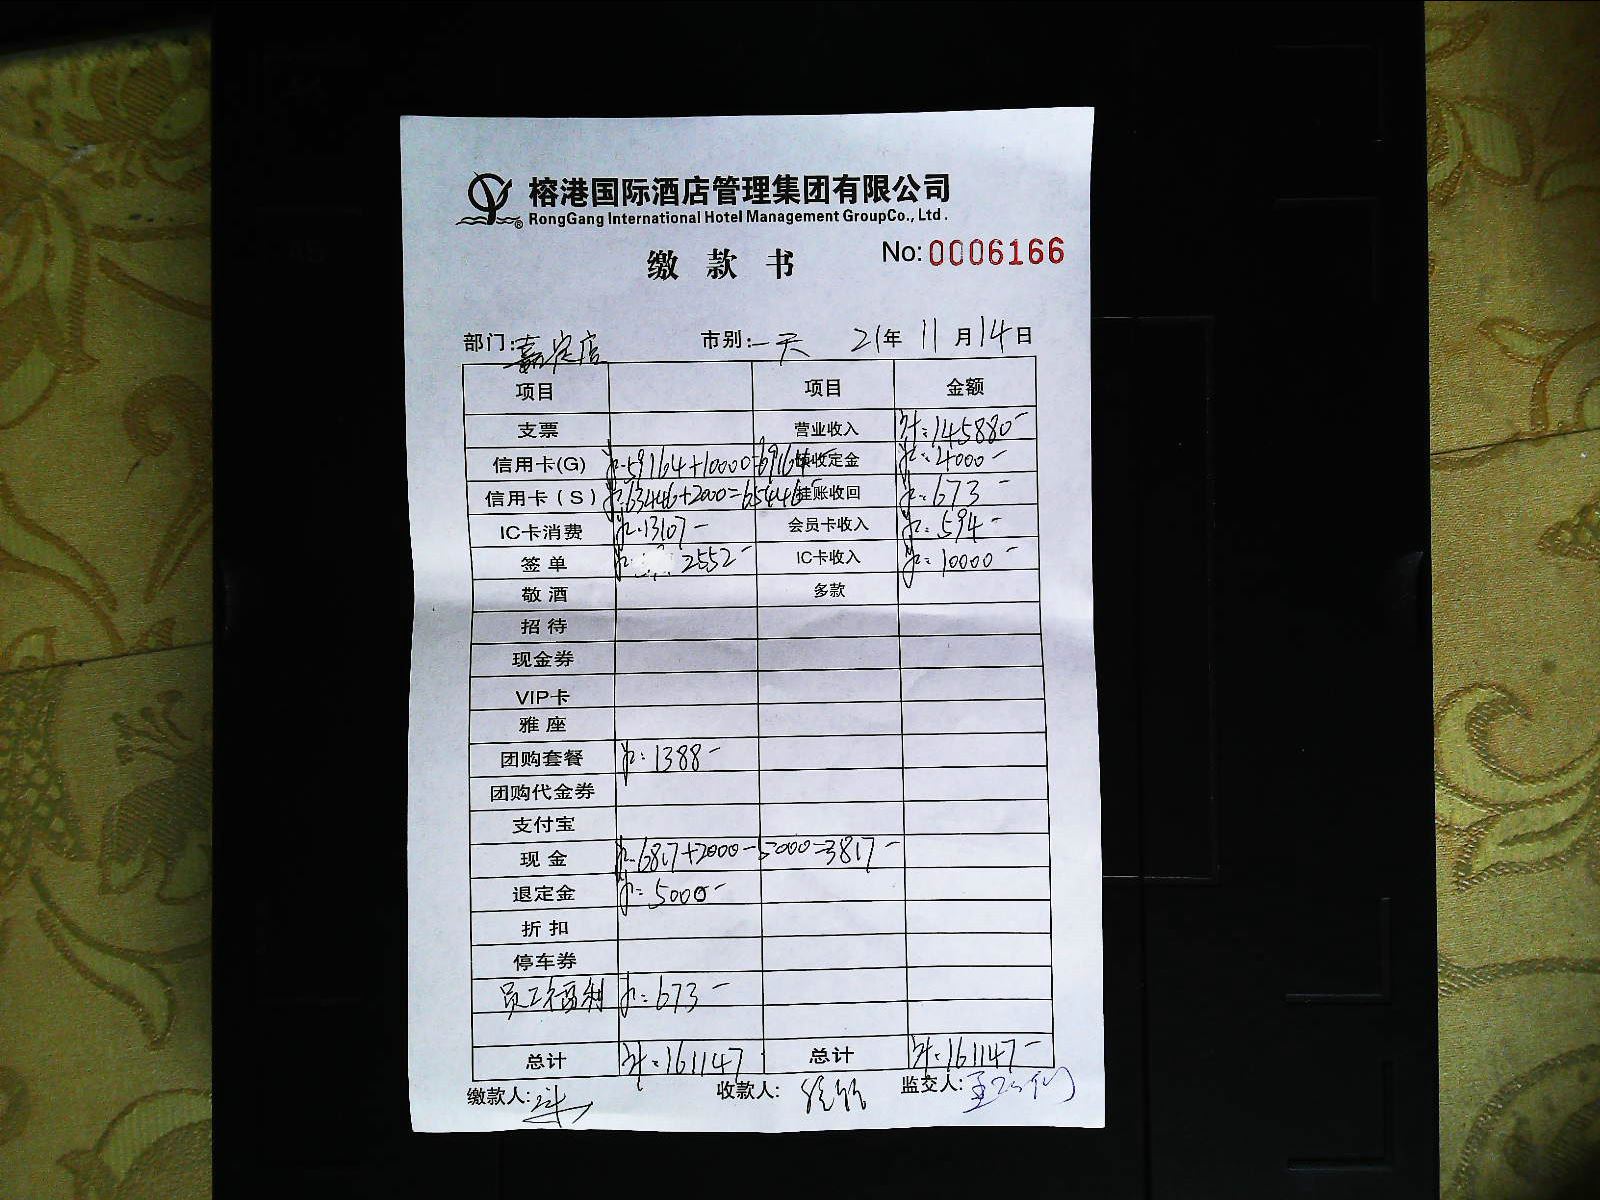 榕港国际酒店管理集团有限公司
® RongGang International Hotel Management GroupCo., Ltd.
缴款书 No:0006166
部门:嘉定店 市别:一天 21年11月14日
项目 项目 金额
支票 营业收入 计:145880-
信用卡(G) 记:59164+10000=69164- 预收定金 记:4000-
信用卡(S) 记:63446+2000=65446- 挂账收回 记:673-
IC卡消费 记:13107- 会员卡收入 记:594-
签单 记: 2552- IC卡收入 记:10000-
敬酒 多款
招待
现金券
VIP卡
雅座
团购套餐 记:1388-
团购代金券
支付宝
现金 记:6817+2000-5000=3817-
退定金 记:5000-
折扣
停车券
员工福利 记:673-
总计 计:161147 总计 计:161147-
缴款人: 收款人: 监交人: